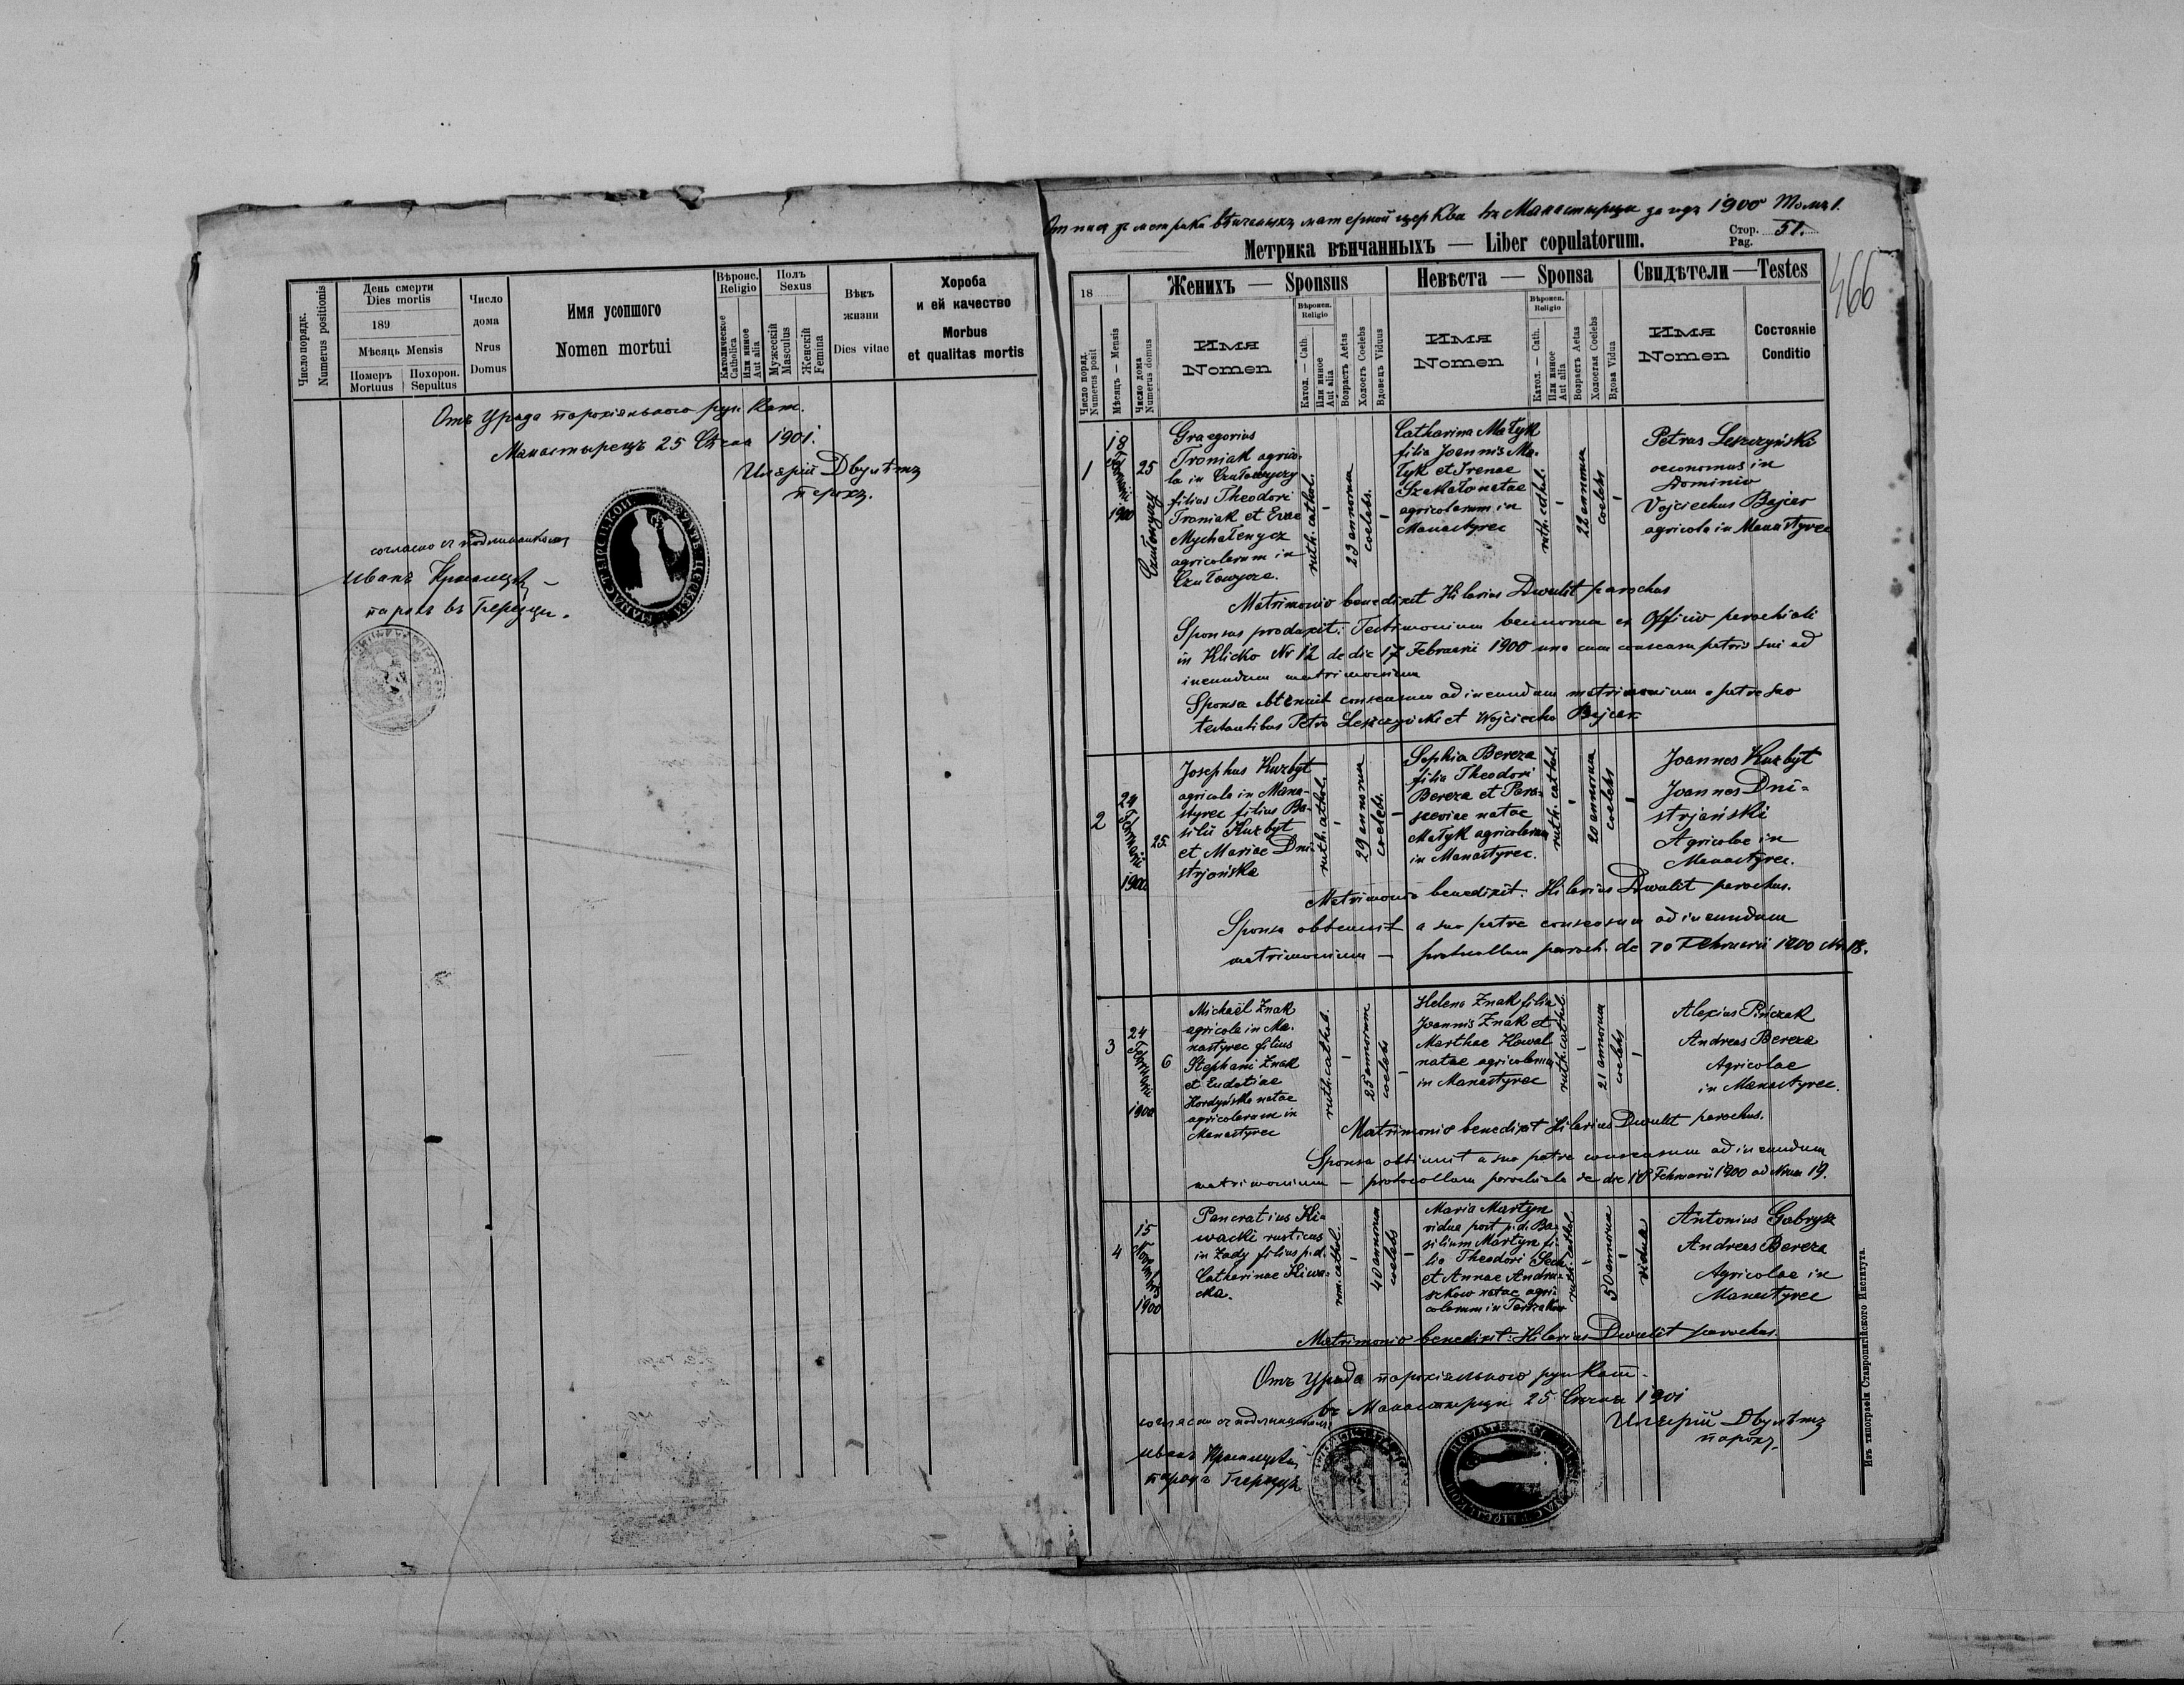 Число порядк.
Numerus positionis
День смерти
Dies mortis
189
Мѣсяць Mensis
Номеръ
Mortuus
Похорон.
Sepultus
Число
дома
Nrus
Domus
Имя усопшого
Nomen mortui
Вѣроис.
Religio
Католическое
Catholica
Или инное
Aut alia
Полъ
Sexus
Мужескій
Masculus
Женскій
Femina
Вѣкъ
жизни
Dies vitae
Хороба
и ей качество
Morbus
et qualitas mortis
Отъ Уряда парохіяльного рук. Кат.
Манастырець 25 Сѣчня 1901.
Иларій Двулѣтъ
парохъ.
согласно съ подлинникомъ
Иванъ
парохъ въ
въ Манастырци за годъ 1900 Томъ 1.
Метрика вѣнчанныхъ — Liber copulatorum.
Стор.
Pag. 51.
466
18
Женихъ — Sponsus
Невѣста — Sponsa
Свидѣтели — Testes
Число поряд.
Numerus posit
Мѣсяць — Mensis
Число дома
Numerus domus
Имя
Nomen
Вѣроисп.
Religio
Катол. — Cath.
Или инное
Aut alia
Возрастъ Aetas
Холостъ Coelebs
Вдовецъ Viduus
Имя
Nomen
Вѣроисп.
Religio
Катол. — Cath.
Или инное
Aut alia
Возрастъ Aetas
Холостая Coelebs
Вдова Vidua
Имя
Nomen
Состояніе
Conditio
1
18
Februarii
1900
25
Czułowyczy
Graegorius
Troniak agrico-
la in Czułowyczy
filius Theodori
Troniak et Evae
Mychałenycz
agricolarum in
Czułowycze.
ruth. cathol.
23 annorum
coelebs.
Catharina Małyk
filia Joannis Ma-
łyk et Irenae
Szemeło natae
agricolarum in
Manastyrec
ruth. cathol.
22 annorum
coelebs
Petrus Leszczyński
oeconomus in
Dominio
Vojciechus Bajcar
agricola in Manastyrec
Matrimonio benedixit Hilarius Dwulit parochus
Sponsus produxit: Testimonium bannorum ex Officio parochiali
in Klicko Nr 12 de die 17 Februarii 1900 una cum consensu patris sui ad
ineundum matrimonium
Sponsa obtenuit consensum ad ineundum matrimonium a patre suo
testantibus Petro Leszczyński et Wojciecho Bajcar
2
24
Februarii
1900
25
Josephus Kurbyt
agricola in Mana-
styrec filius Ba-
silii Kurbyt
et Mariae Dni-
strjańska
ruth. cathol.
29 annorum
coelebs.
Sophia Bereza
filia Theodori
Bereza et Para-
sceviae natae
Małyk agricolarum
in Manastyrec.
ruth. cathol.
20 annorum
coelebs
Joannes Kurbyt
Joannes Dni-
strjański
Agricolae in
Manastyrec.
Matrimonio benedixit: Hilarius Dwulit parochus.
Sponsa obtenuit a suo patre consensum ad ineundum
matrimonium — protocollum paroch. de 20 Februarii 1900 Nr 18.
3
24
Februarii
1900
6
Michaël Znak
agricola in Ma-
nastyrec filius
Stephani Znak
et Eudotiae
Hordyńska natae
agricolarum in
Manastyrec
ruth. cathol.
25 annorum
coelebs
Helena Znak filia
Joannis Znak et
Marthae Kowal
natae agricolarum
in Manastyrec
ruth. cathol.
21 annorum
coelebs
Alexius Pińczak
Andreas Bereza
Agricolae
in Manastyrec.
Matrimonio benedixit Hilarius Dwulit parochus.
Sponsa obtinuit a suo patre consensum ad ineundum
matrimonium — protocollum parochiale de die 18 Februarii 1900 ad Nrum 19.
4
15
Novembris
1900
Pancratius Hi-
wacki rusticus
in Zady filius p.d.
Catharinae Hiwa-
cka.
rom. cathol.
40 annorum
coelebs
Maria Martyn
vidua post p.d. Ba-
silium Martyn fi-
lia Theodori Sech
et Annae Andru-
szków natae agri-
colarum in
ruth. cathol.
50 annorum
vidua
Antonius Gabrysz
Andreas Bereza
Agricolae in
Manastyrec
Matrimonio benedixit: Hilarius Dwulit parochus.
Отъ Уряда парохіяльного рук. Кат.
въ Манастырци 25 Сѣчня 1901
Иларій Двулѣтъ
парохъ.
согласно съ подлинникомъ
Иванъ
парохъ
Изъ типографіи Ставропигійского Института.